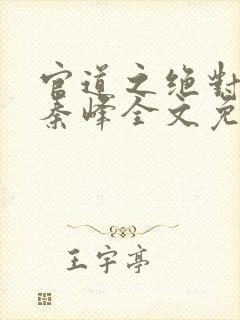 官道之绝对
秦峰全文免
王宇亭